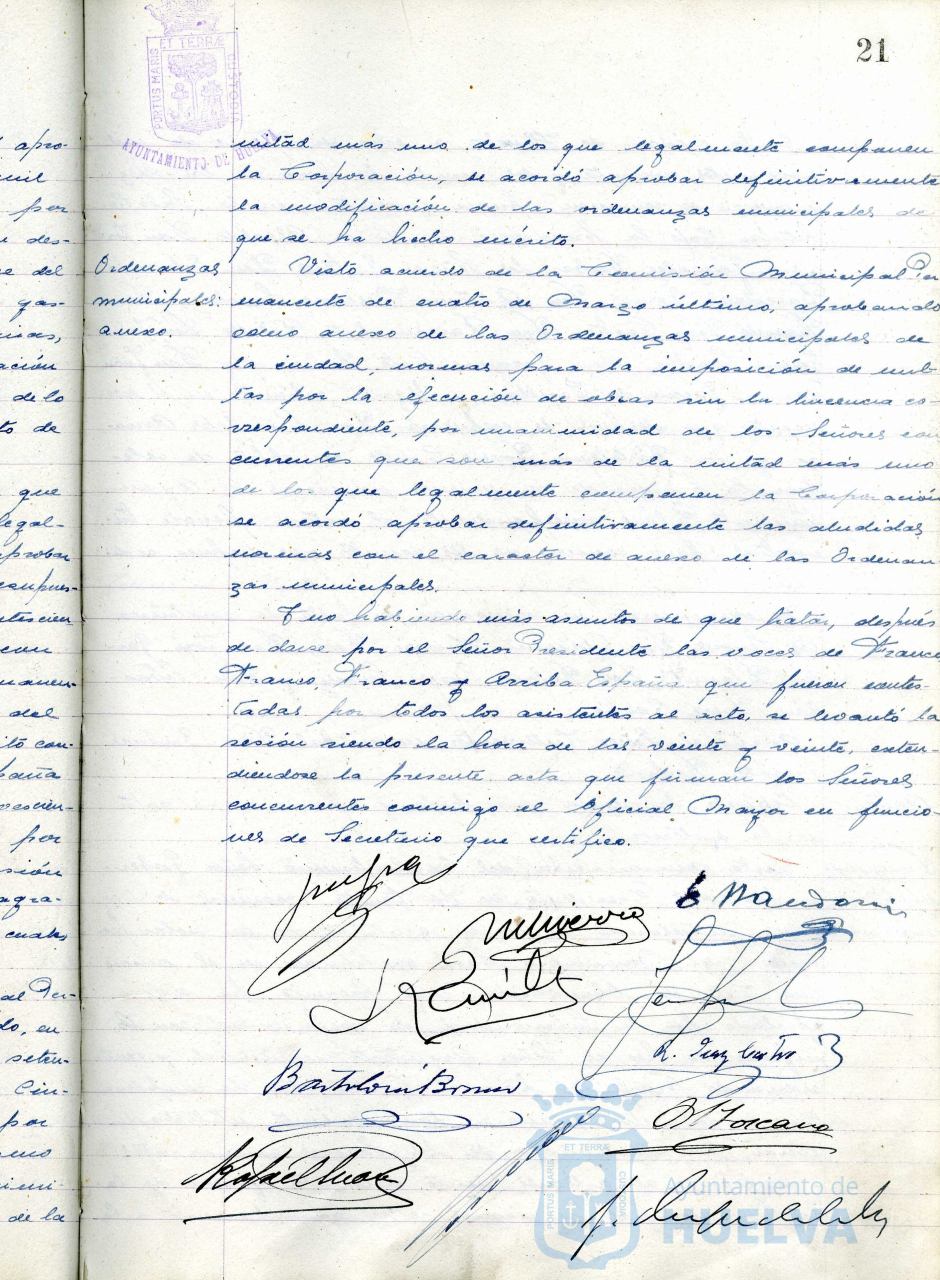 21
PORTUS MARIS ET TERRÆ CUSTODIA
AYUNTAMIENTO DE HUELVA
mitad más uno de los que legalmente componen
la Corporación, se acordó aprobar definitivamente
la modificación de las ordenanzas municipales de
que se ha hecho mérito.
Ordenanzas
municipales:
anexo.
Visto acuerdo de la Comisión Municipal Per
manente de cuatro de Marzo último, aprobando
como anexo de las Ordenanzas municipales de
la ciudad, normas para la imposición de mul-
tas por la ejecución de obras sin la licencia co-
rrespondiente, por unanimidad de los Señores con
currentes que son más de la mitad más uno
de los que legalmente componen la Corporación
se acordó aprobar definitivamente las aludidas
normas con el caracter de anexo de las Ordenan
zas municipales.
Y no habiendo más asuntos de que tratar, después
de darse por el Señor Presidente las voces de Franco
Franco, Franco y Arriba España que fueron contes-
tadas por todos los asistentes al acto, se levantó la
sesión siendo la hora de las veinte y veinte, exten-
diéndose la presente acta que firman los Señores
concurrentes conmigo el Oficial Mayor en funcio-
nes de Secretario que certifico.
apro-
mil
por
des-
del
gas-
ación
de lo
to de
que
legal-
aprobar
con
del
por
sión
agra-
cuales
al Per-
do, en
seten-
Cin-
por
de la
Bartolomé
Toscano
Rafael
ET TERRÆ
PORTUS MARIS
Ayuntamiento de
HUELVA